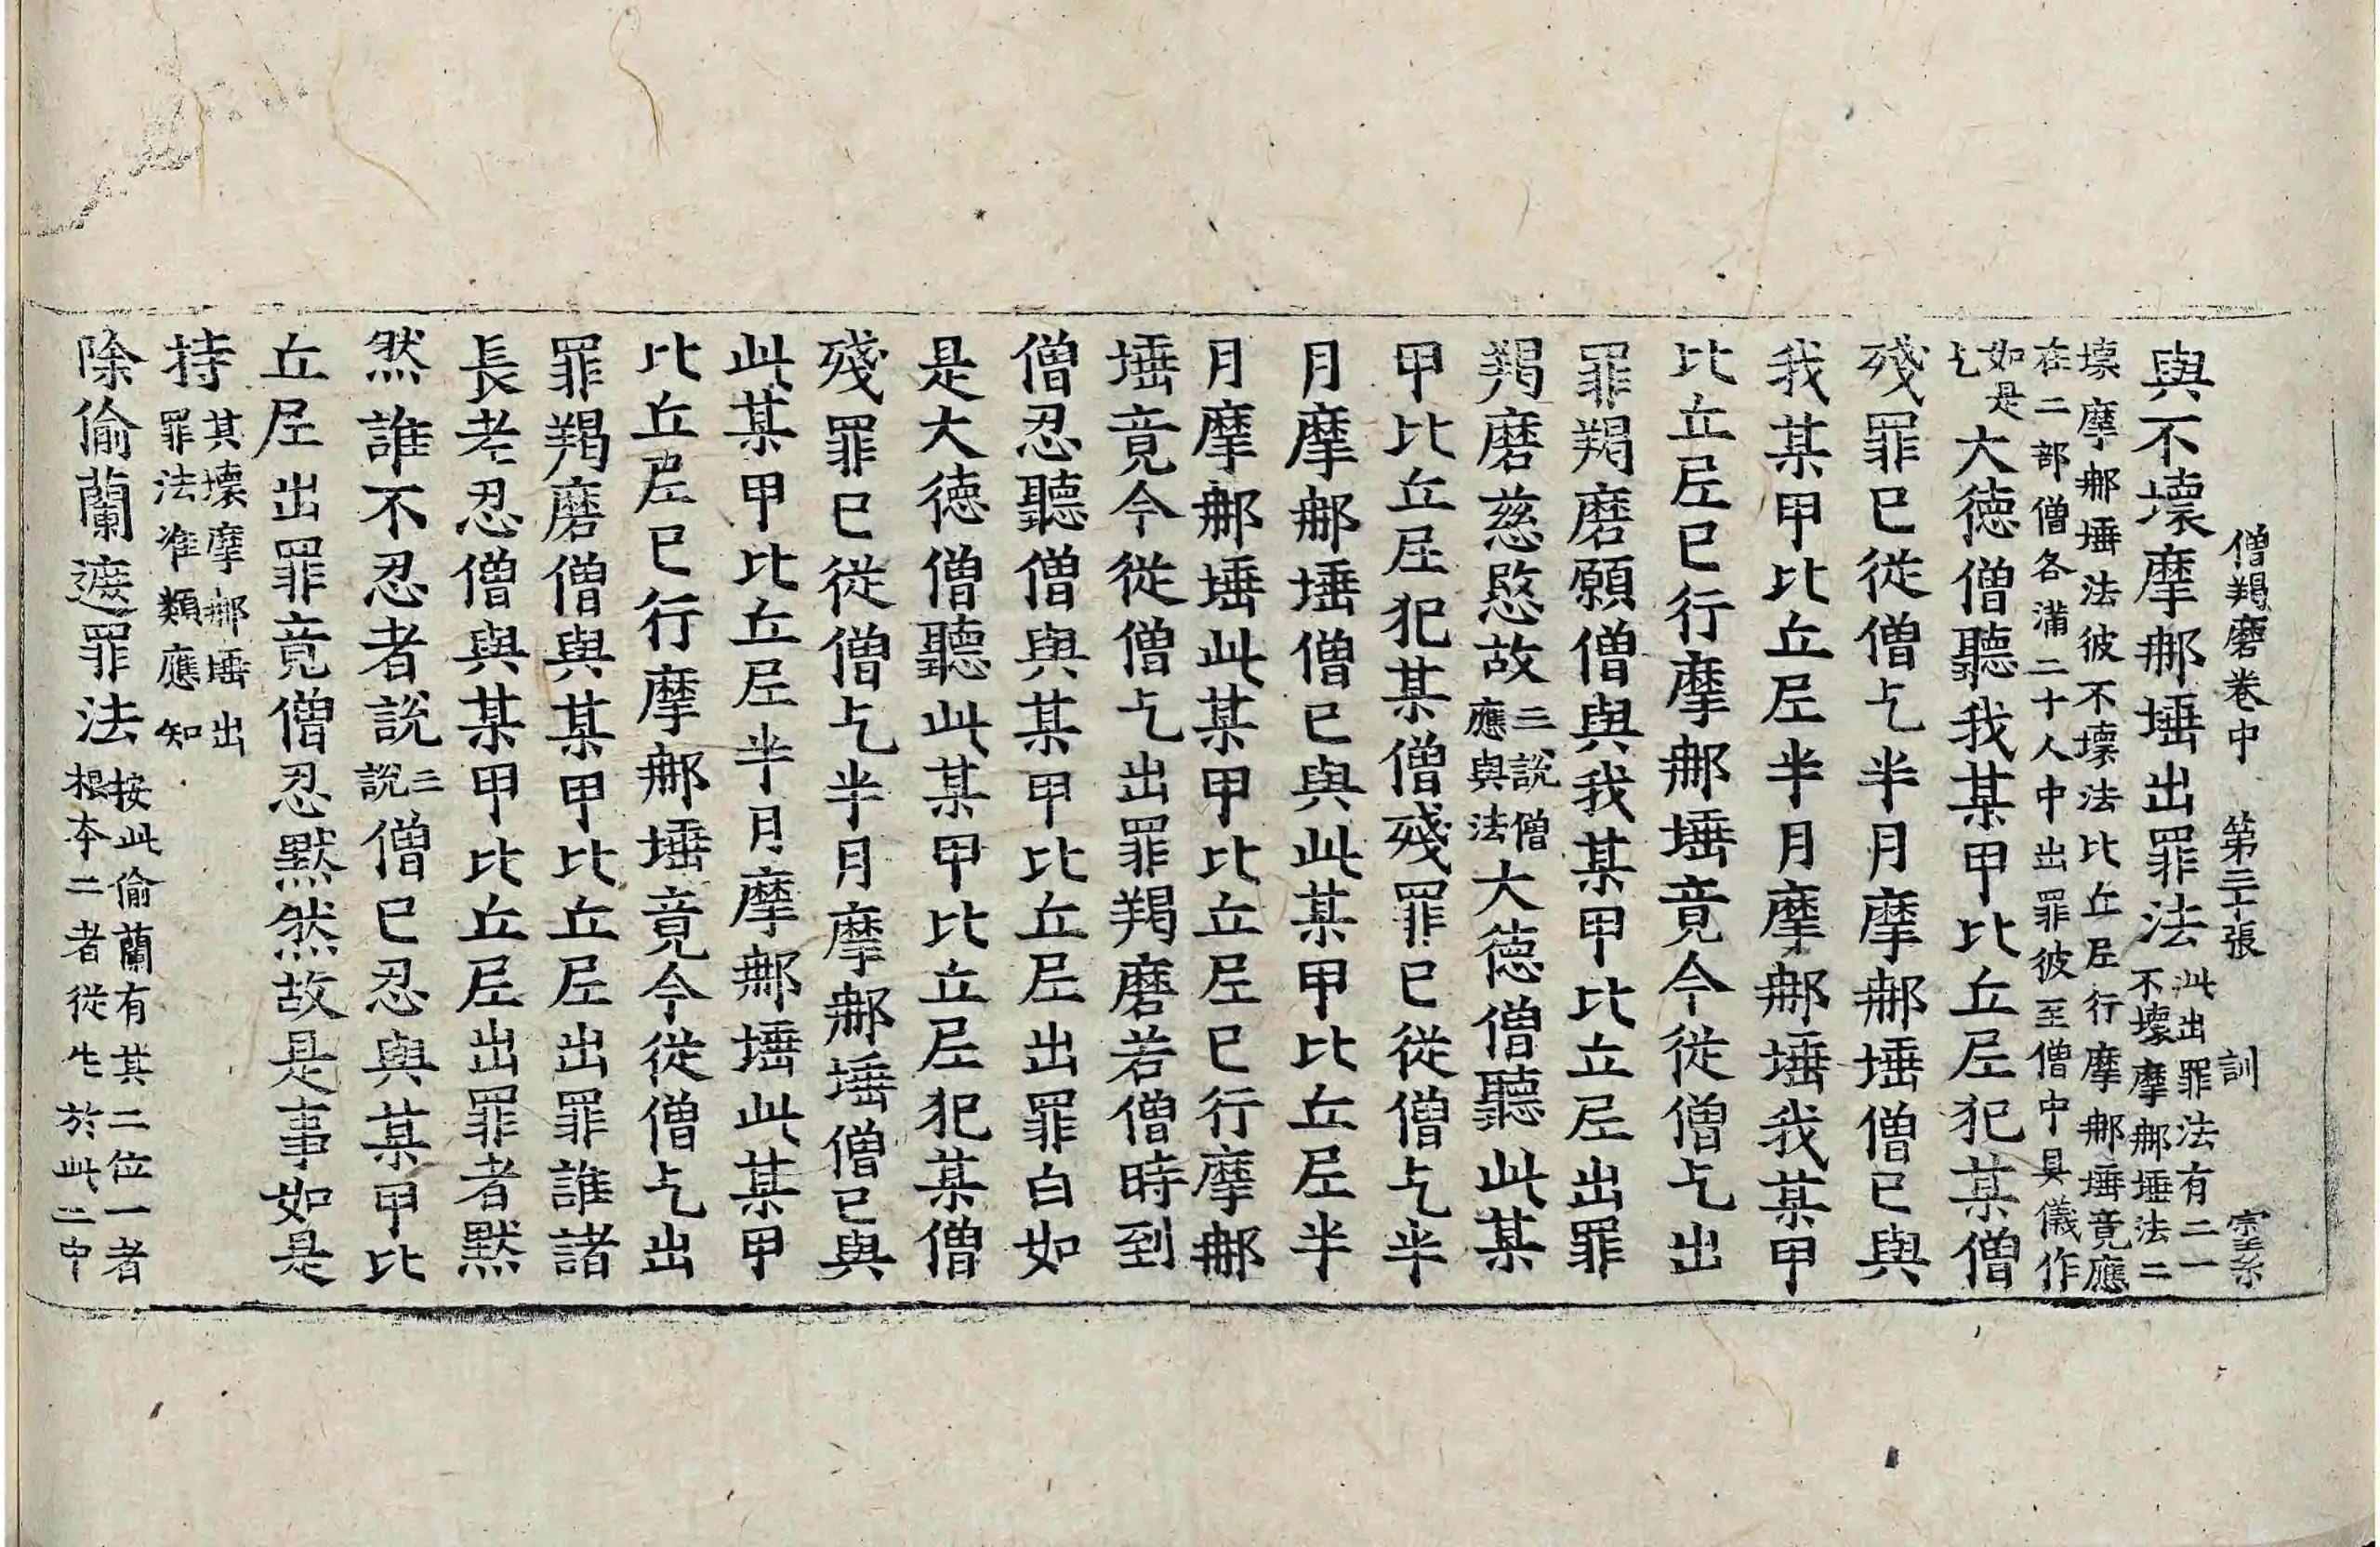 僧羯磨卷中 第三十張 訓
與不壞摩那埵出罪法此出罪法有二一不壞摩那埵法二
壞摩那埵法彼不壞法比丘尼行摩那埵竟應
在二部僧各滿二十人中出罪彼至僧中具儀作
如是乞大德僧聽我某甲比丘尼犯某僧
殘罪已從僧乞半月摩那埵僧已與
我某甲比丘尼半月摩那埵我某甲
比丘尼已行摩那埵竟今從僧乞出
罪羯磨願僧與我某甲比丘尼出罪
羯磨慈愍故三說僧應與法大德僧聽此某
甲比丘尼犯某僧殘罪已從僧乞半
月摩那埵僧已與此某甲比丘尼半
月摩那埵此某甲比丘尼已行摩那
埵竟今從僧乞出罪羯磨若僧時到
僧忍聽僧與某甲比丘尼出罪白如
是大德僧聽此某甲比丘尼犯某僧
殘罪已從僧乞半月摩那埵僧已與
此某甲比丘尼半月摩那埵此某甲
比丘尼已行摩那埵竟今從僧乞出
罪羯磨僧與某甲比丘尼出罪誰諸
長老忍僧與某甲比丘尼出罪者默
然誰不忍者說三說僧已忍與某甲比
丘尼出罪竟僧忍默然故是事如是
持其壞摩那埵出罪法准類應知
除偷蘭遮罪法按此偷蘭有其二位一者根本二者從生於此二中